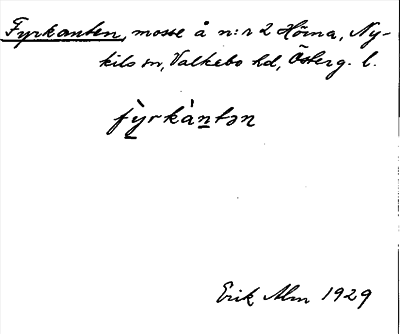 Fyrkanten, mosse å n:r 2 Hörna, Ny-
kils sn, Valkebo hd, Österg. l.
fỳrkàntən
Erik Alm 1929